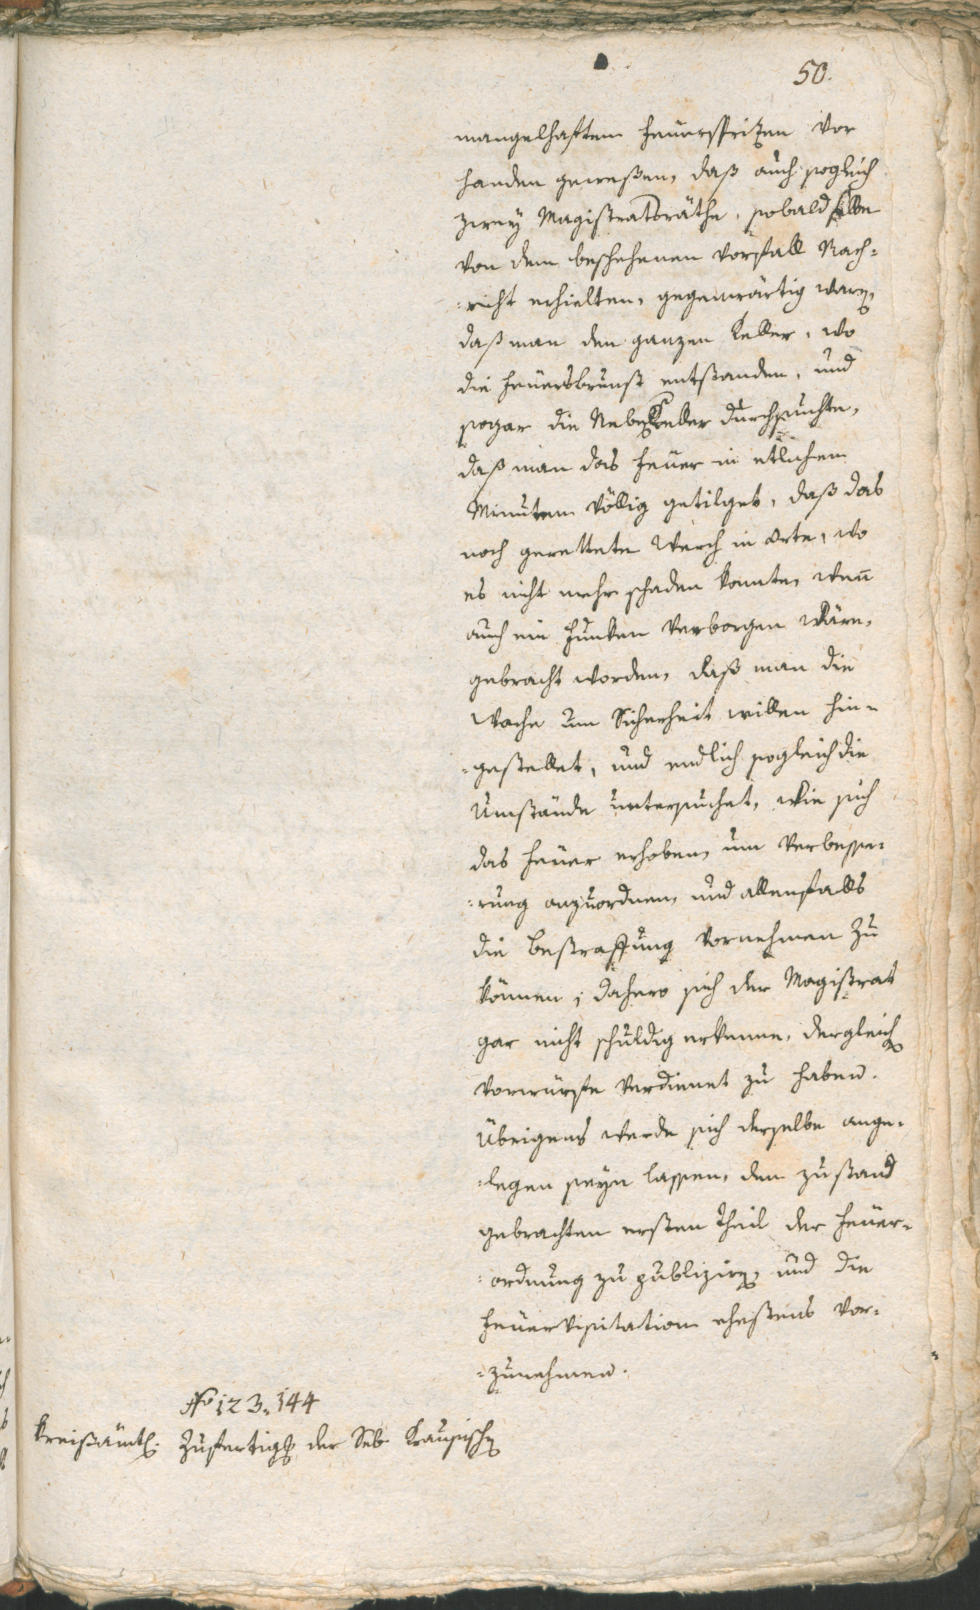 50.
mangelhaftem Feuerspritzen vor
handen geweßen, daß auch sogleich
zwey Magistratsräthe, sobald selbe
von dem beschehenen Vorfall Nach=
=richt erhielten, gegenwärtig waren,
daß man den ganzen Keller, wo
die Feuersbrunst entstanden, und
sogar die Neben Keller durchsuchte,
daß man das Feuer in etlichen
Minuten völlig getilget, daß das
noch gerettete Werch in Orte, wo
es nicht mehr schaden konnte, wenn
auch ein Funken verborgen wäre,
gebracht worden, daß man die
Wache um Sicherheit willen hin=
=gestellet, und endlich sogleich die
Umstände untersuchet, wie sich
das Feuer erhoben, um Verbesse=
=rung anzuordnen, und allenfalls
die Bestraffung vornehmen zu
können; dahero sich der Magistrat
gar nicht schuldig erkenne, dergleichen
Vorwürfe verdienet zu haben.
Übrigens werde sich derselbe ange=
=legen seyn lassen, den zustand
gebrachten ersten Theil der Feuer=
=ordnung zu publiziren, und die
Feuervisitation ehestens vor=
=zunehmen.
No 123. 144
Kreißämtl. Zufertigung der Seb. Krausischen